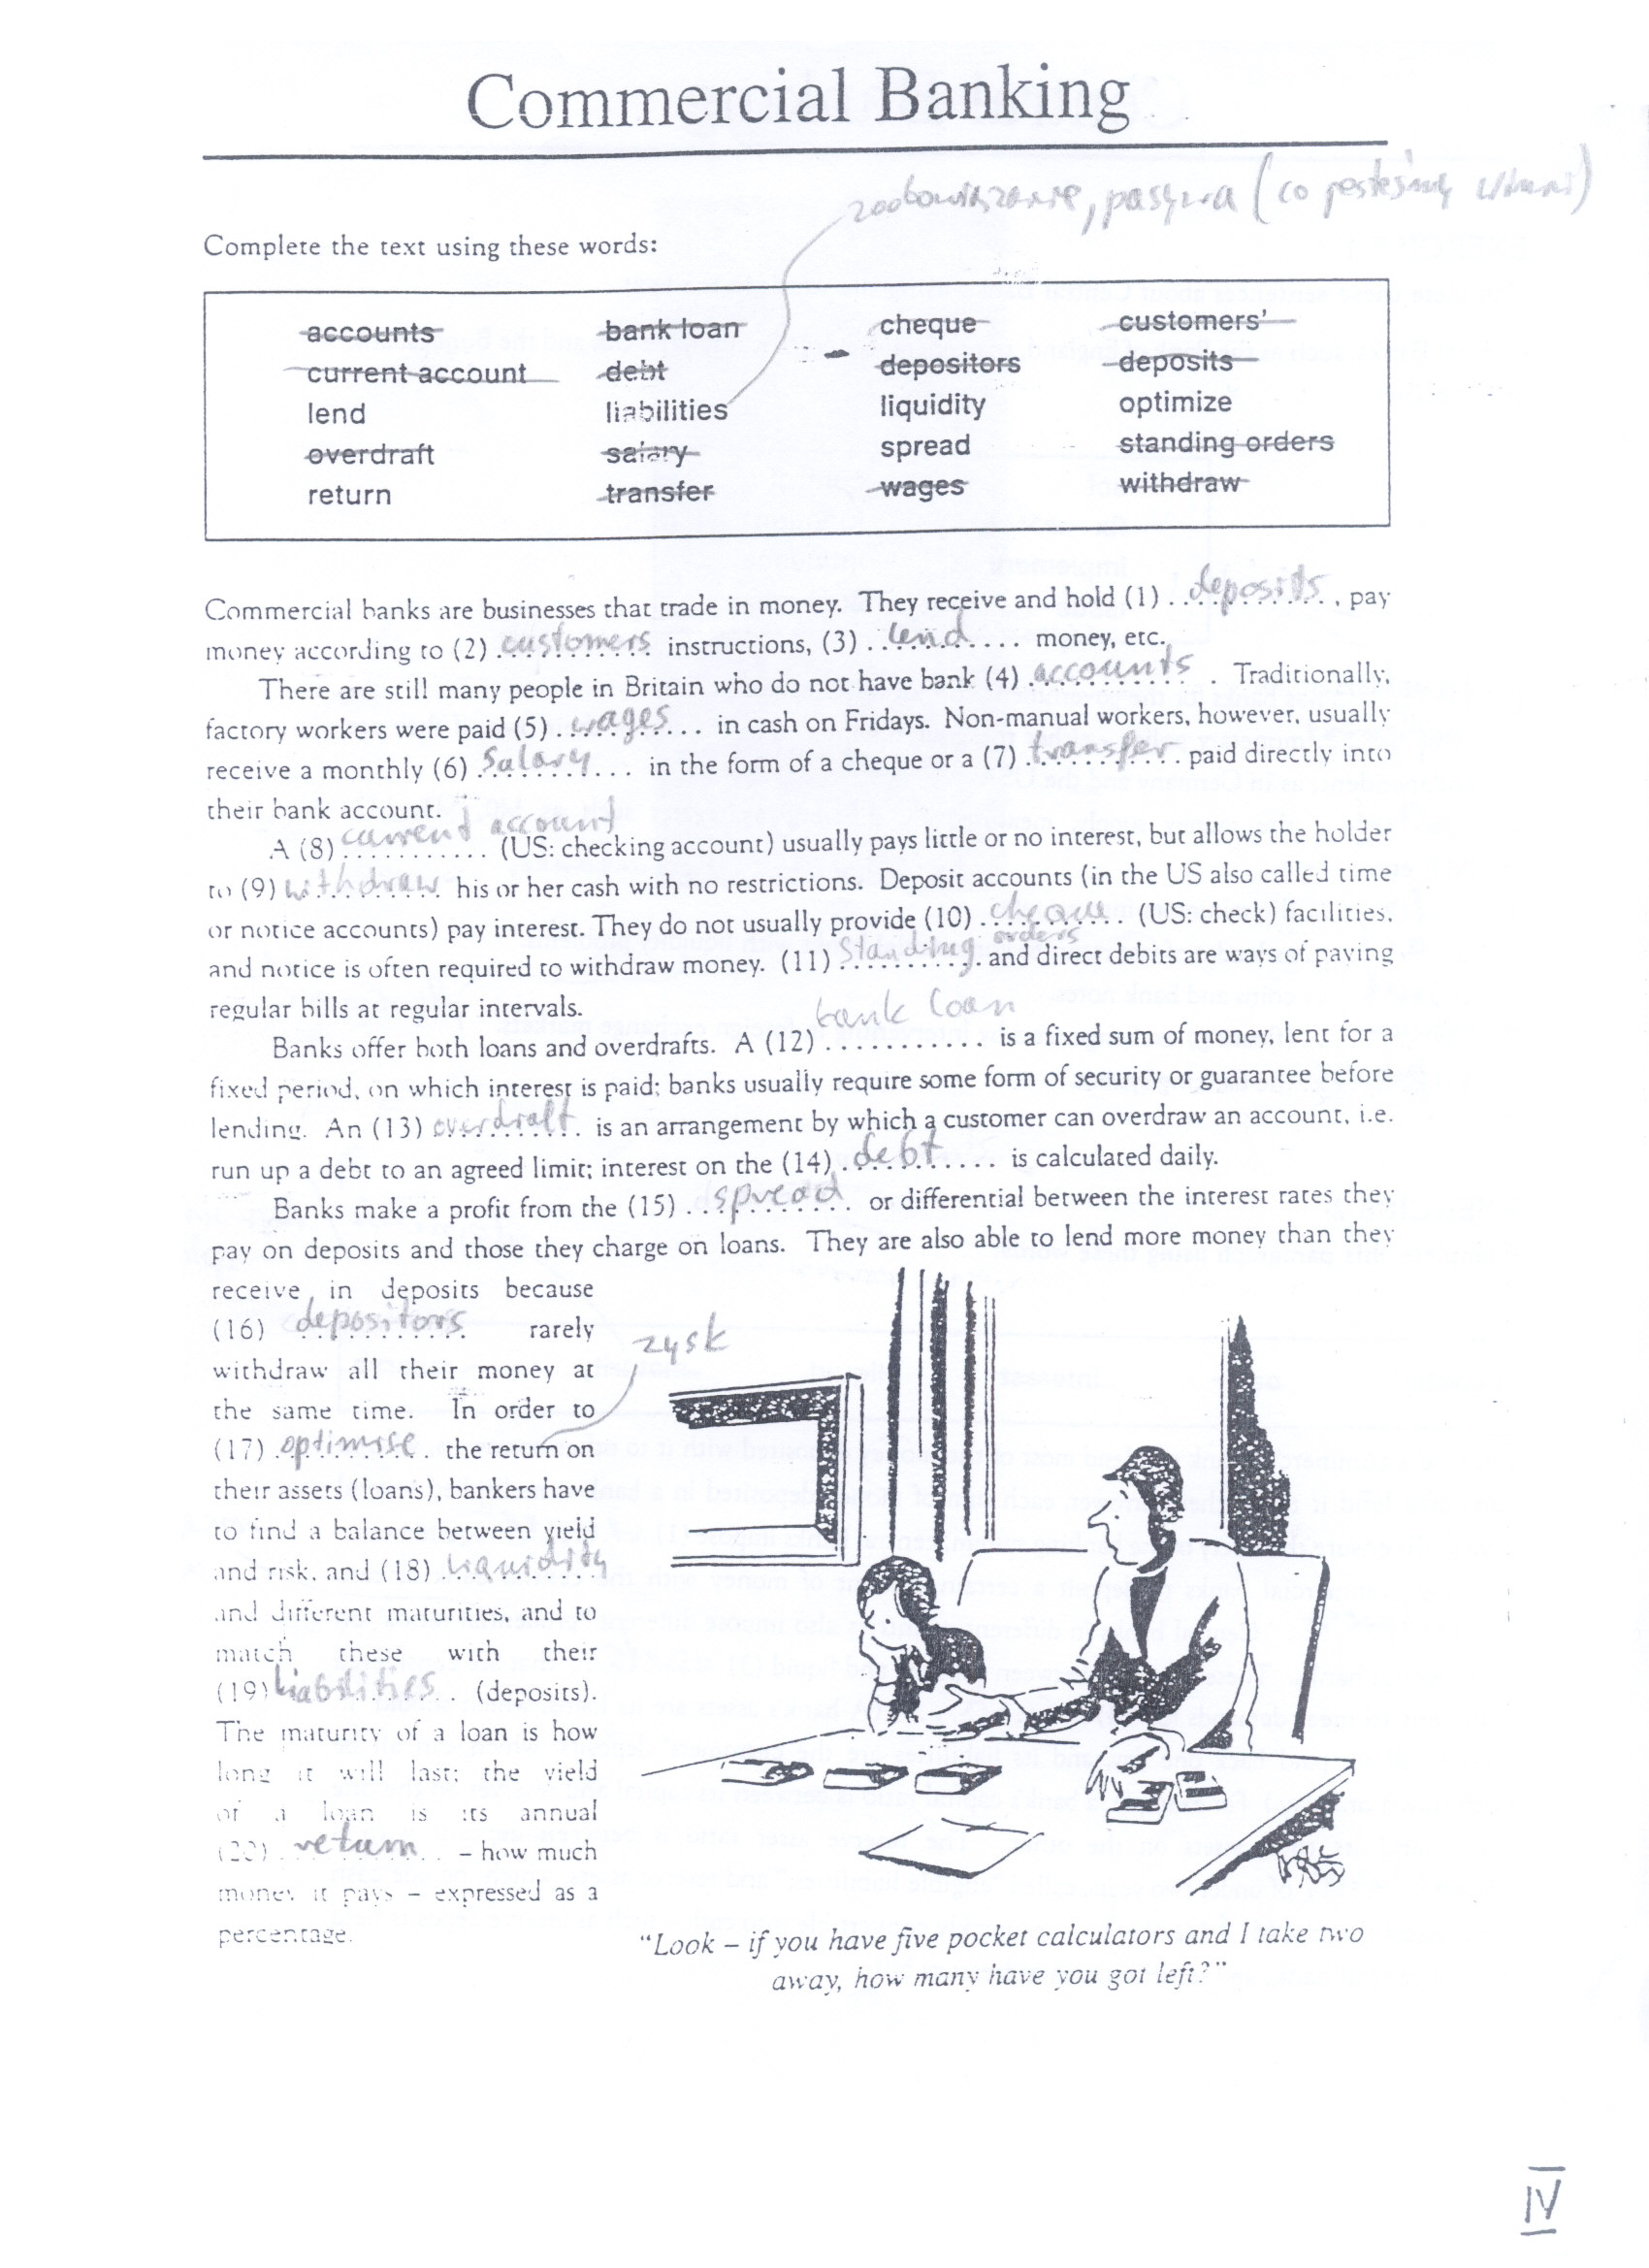 Commercial Banking
zobowiązanie, pasywa (co jesteśmy winni)
Complete the text using these words:
accounts bank loan cheque customers'
current account debt depositors deposits
lend liabilities liquidity optimize
overdraft salary spread standing orders
return transfer wages withdraw
Commercial banks are businesses that trade in money. They receive and hold (1) deposits, pay
money according to (2) customers instructions, (3) lend money, etc.
There are still many people in Britain who do not have bank (4) accounts. Traditionally,
factory workers were paid (5) wages in cash on Fridays. Non-manual workers, however, usually
receive a monthly (6) Salary in the form of a cheque or a (7) transfer paid directly into
their bank account.
A (8) current account (US: checking account) usually pays little or no interest, but allows the holder
to (9) withdraw his or her cash with no restrictions. Deposit accounts (in the US also called time
or notice accounts) pay interest. They do not usually provide (10) cheque (US: check) facilities,
and notice is often required to withdraw money. (11) Standing orders and direct debits are ways of paying
regular bills at regular intervals.
Banks offer both loans and overdrafts. A (12) bank loan is a fixed sum of money, lent for a
fixed period, on which interest is paid; banks usually require some form of security or guarantee before
lending. An (13) overdraft is an arrangement by which a customer can overdraw an account, i.e.
run up a debt to an agreed limit; interest on the (14) debt is calculated daily.
Banks make a profit from the (15) spread or differential between the interest rates they
pay on deposits and those they charge on loans. They are also able to lend more money than they
receive in deposits because
(16) depositors rarely
zysk
withdraw all their money at
the same time. In order to
(17) optimise the return on
their assets (loans), bankers have
to find a balance between yield
and risk, and (18) liquidity
and different maturities, and to
match these with their
(19) Liabilities (deposits).
The maturity of a loan is how
long it will last; the yield
of a loan is its annual
(20) return – how much
money it pays – expressed as a
percentage.
"Look – if you have five pocket calculators and I take two
away, how many have you got left?"
IV